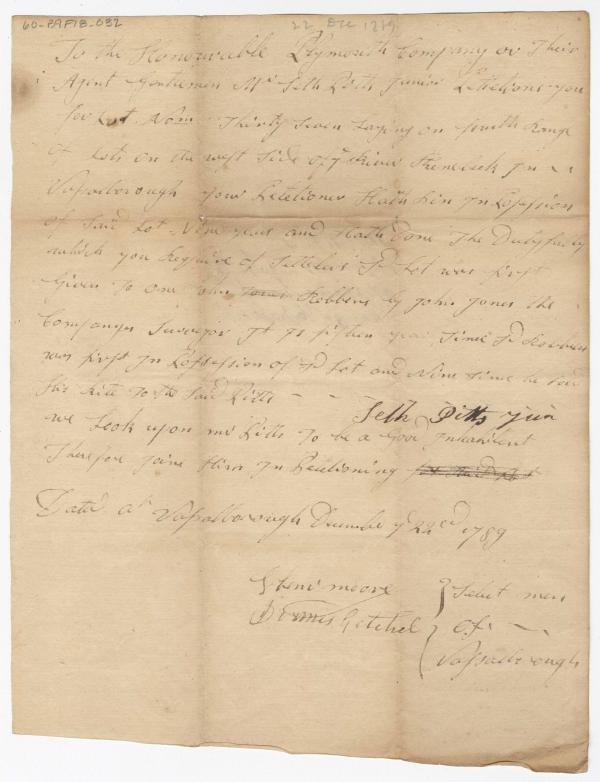 60-B9F1B-032
22 Dec 1789
To the Honourable Plymouth Company or Their
Agent Gentlemen Mr Seth Pitts Junior Petetions you
for Lot Nom Thirty Seven Laying on fourth Range
of Lots on the west Side of ye River Kenebek In
Vassalborough your Petetioner Hath bin In Possesion
of Said Lot Nine years and Hath Done The Duty fully
which you Require of Settelers Sd Lot was first
Given To one John Jones Robbens by John Jones the
Companys Surveior It Is fifteen year Since Sd Robbens
was first In Possession of Sd Lot and Nine Since he Sold
His Rite To the Said Pitts
Seth Pitts Jun
we Look upon mr Pitts To be a Good Inhabitent
Therefore Joine Him In Petetioning for Said Lot
Dated at Vassalborough December ye 22nd 1789
moore
Dennis Getchel
Select men
of
Vassalborough